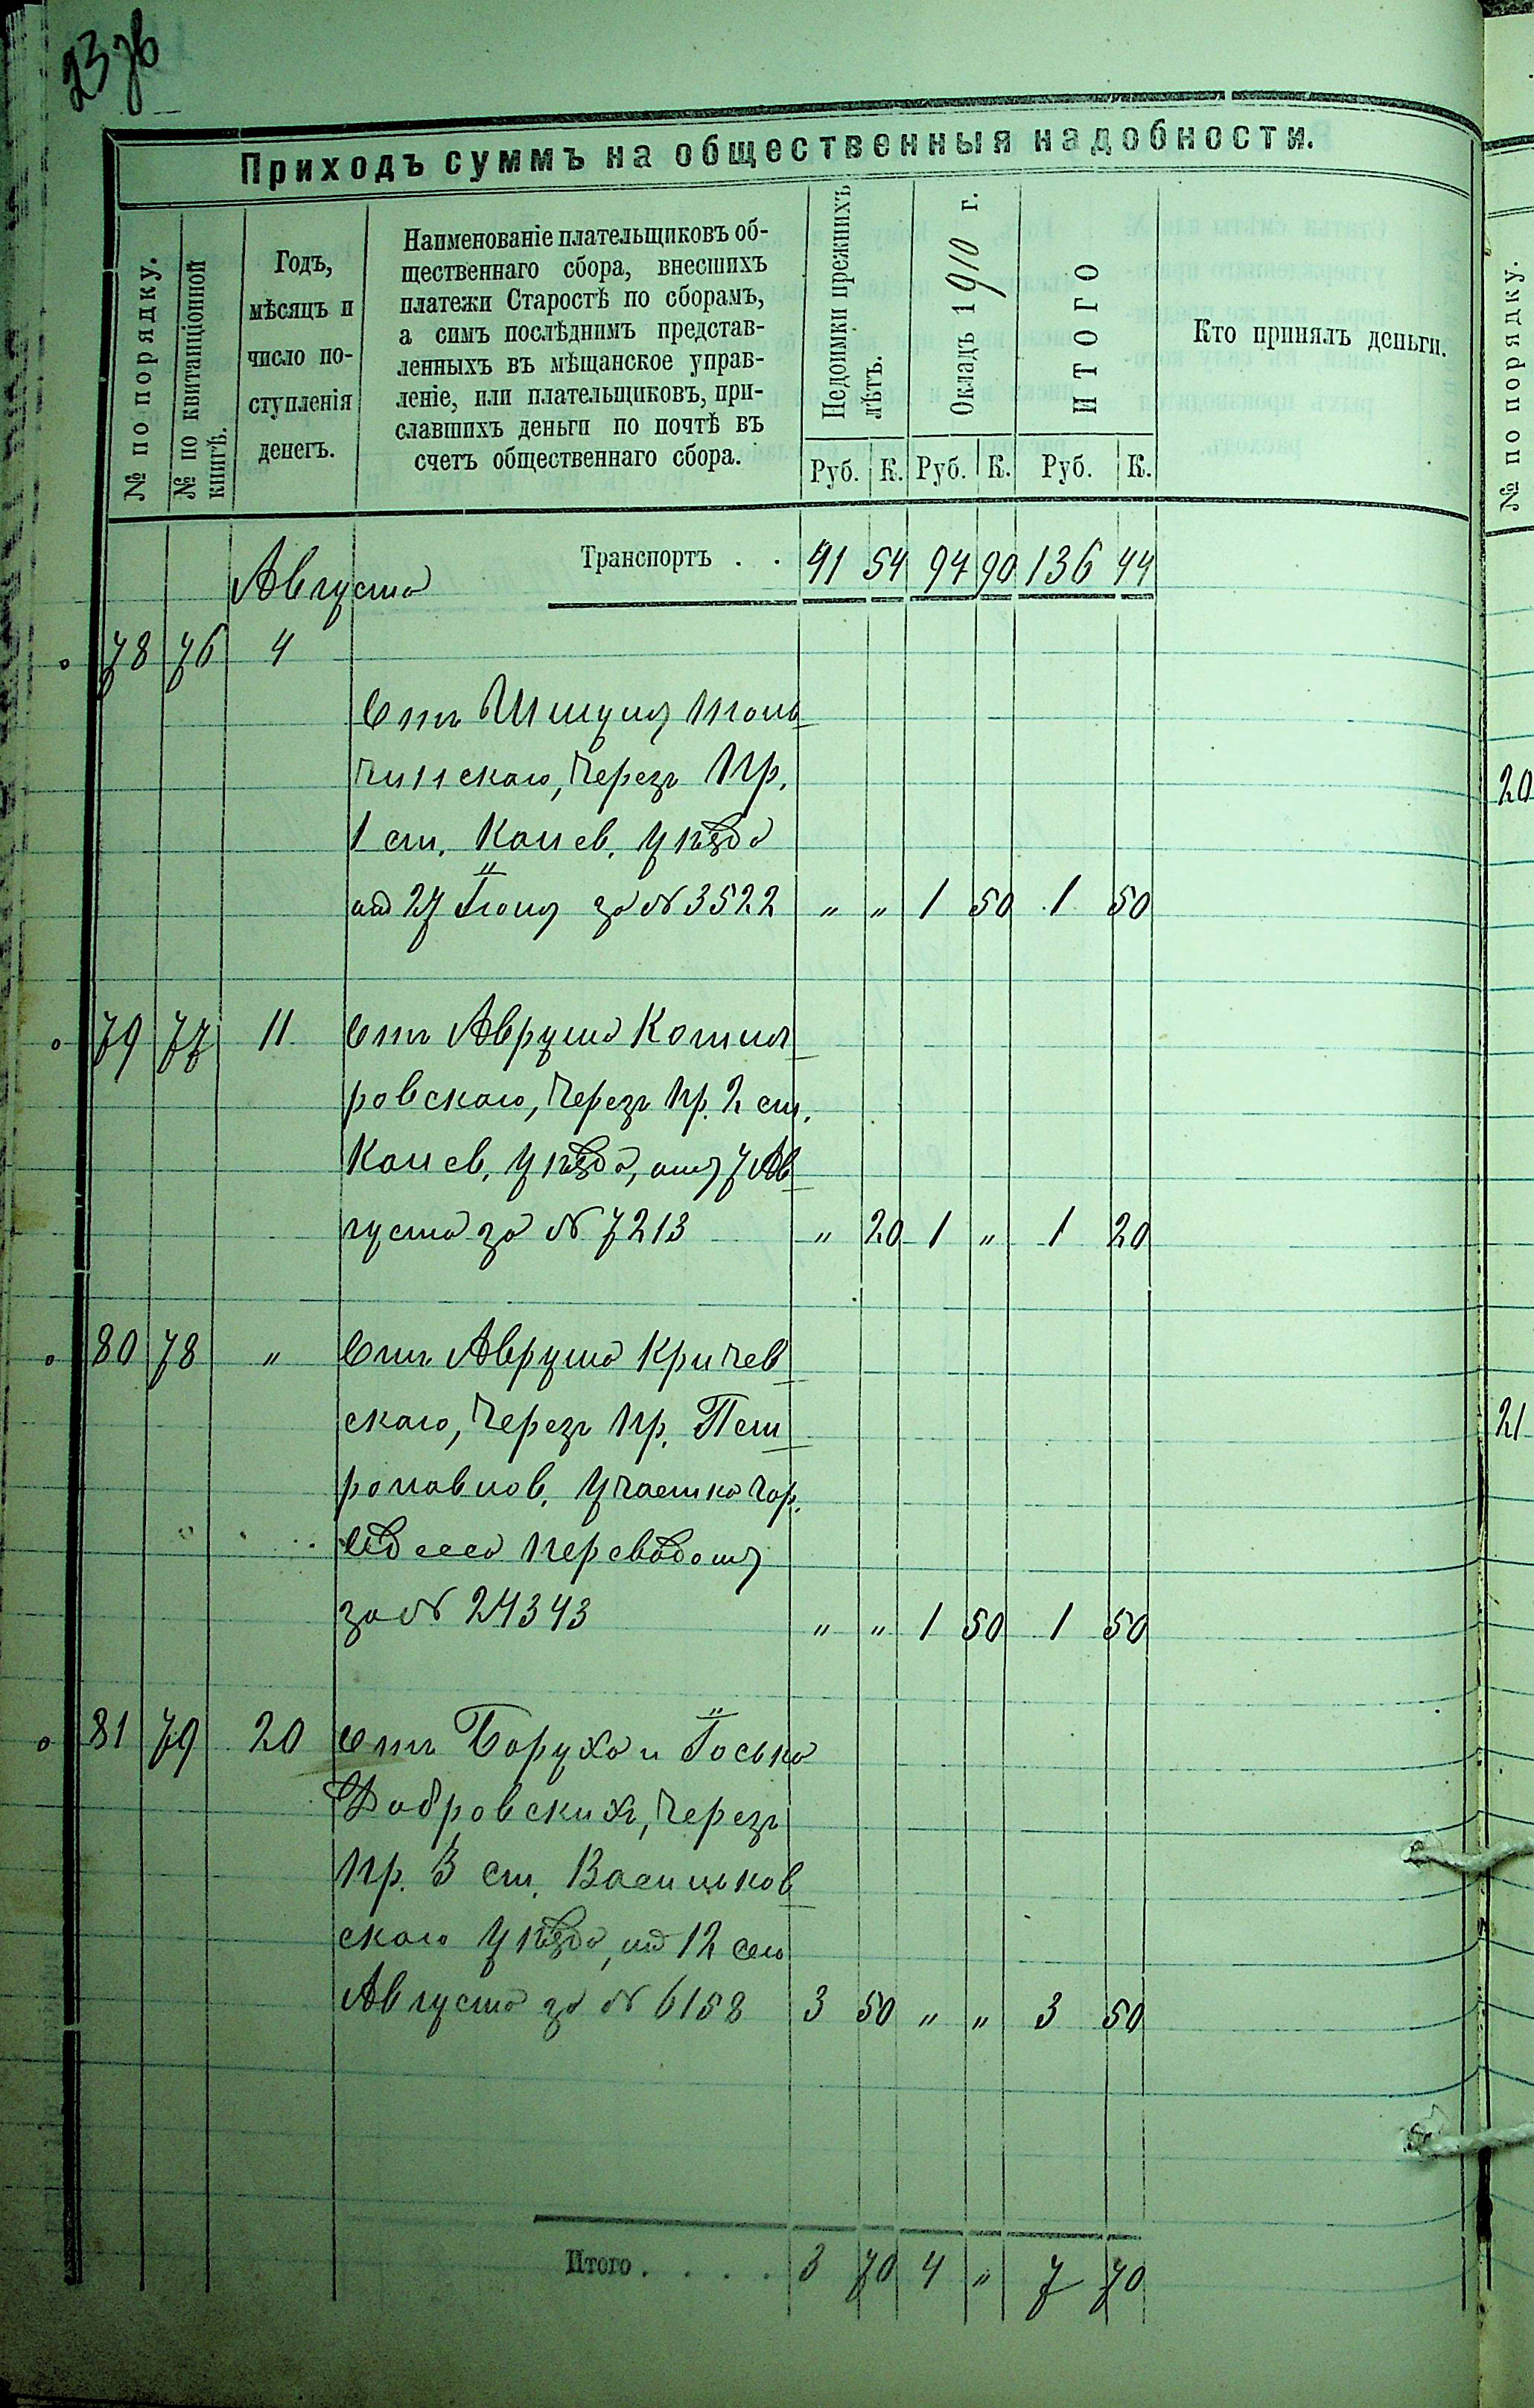 23 об
Приходъ суммъ на общественныя надобности.
№ по порядку.
№ по квитанціонной книгѣ.
Годъ,
мѣсяцъ и
число по-
ступленія
денегъ.
Наименованіе плательщиковъ об-
щественнаго сбора, внесшихъ
платежи Старостѣ по сборамъ,
а симъ послѣднимъ представ-
ленныхъ въ мѣщанское управ-
леніе, или плательщиковъ, при-
славшихъ деньги по почтѣ въ
счетъ общественнаго сбора.
Недоимки прежнихъ лѣтъ.
Окладъ 1910 г.
ИТОГО
Кто принялъ деньги.
Руб. К. Руб. К. Руб. К.
Августа Транспортъ . . 41 54 94 90 136 44
78 76 4
Отъ
чинскаго, черезъ Пр.
1 ст. Канев. уѣзда
отъ 27 Іюля за № 3522 " " 1 50 1 50
79 77 11 Отъ Аврума Котля
ровскаго, черезъ Пр. 2 ст.
Канев. уѣзда, отъ 7 Ав
густа за № 7213 " 20 1 " 1 20
80 78 " Отъ Аврума Кричев
скаго, черезъ Пр. Пет
ропавлов. участка гор.
Одесса переводомъ
за № 24343 " " 1 50 1 50
81 79 20 Отъ Боруха и Іоська
Добровскихъ, черезъ
Пр. 3 ст. Васильков
скаго уѣзда, отъ 12 сего
Августа за № 6158 3 50 " " 3 50
Итого . . . . 3 70 4 " 7 70
№ по порядку.
20
21